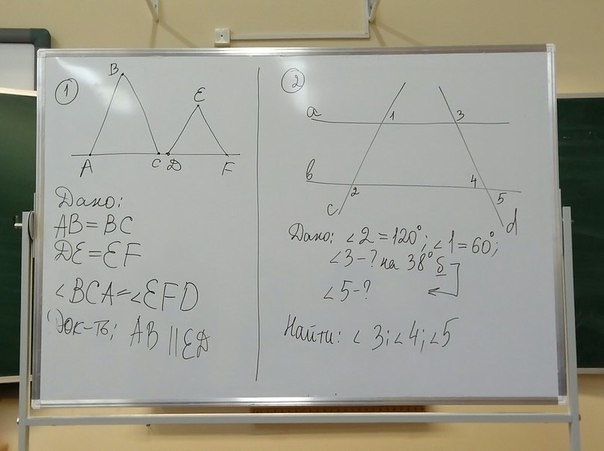 1
B
E
A C D F
Дано:
AB = BC
DE = EF
∠BCA = ∠EFD
Док-ть: AB || ED
2
a 1 3
b 2 4 5
c d
Дано: ∠2 = 120°; ∠1 = 60°;
∠3 - ? на 38° б
∠5 - ?
Найти: ∠3; ∠4; ∠5